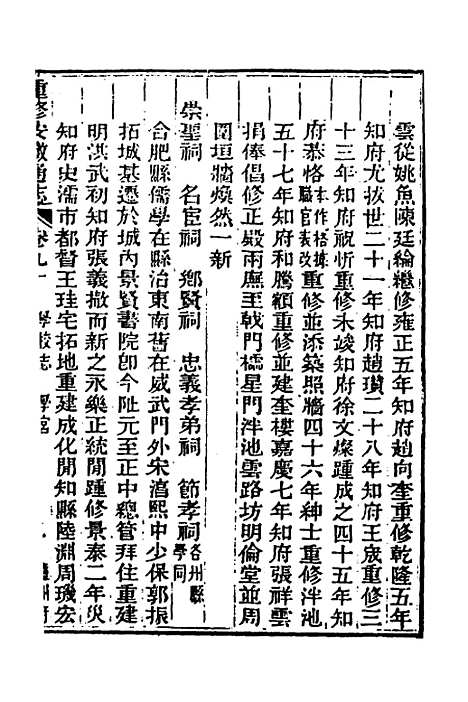 雲從姚魚陳廷綸繼修雍正五年知府趙向奎重修乾隆五年
知府尤拔世二十一年知府趙瓚二十八年知府王成重修三
十三年知府祝忻重修未竣知府徐文燦踵成之四十五年知
府恭恪本作格據職官表改重修並添築照牆四十六年紳士重修泮池
五十七年知府和騰額重修並建奎樓嘉慶七年知府張祥雲
捐俸倡修正殿兩廡至戟門櫺星門泮池雲路坊明倫堂並周
圍垣牆煥然一新
崇聖祠 名宦祠 鄉賢祠 忠義孝弟祠 節孝祠各州縣學同
合肥縣儒學在縣治東南舊在威武門外宋淳熙中少保郭振
拓城基遷於城內景賢書院卽今阯元至正中總管拜住重建
明洪武初知府張義撤而新之永樂正統閒踵修景泰二年災
知府史濡市都督王珪宅拓地重建成化閒知縣陸淵周璣宏
重修安徽通志 卷九十 學校志 學宮